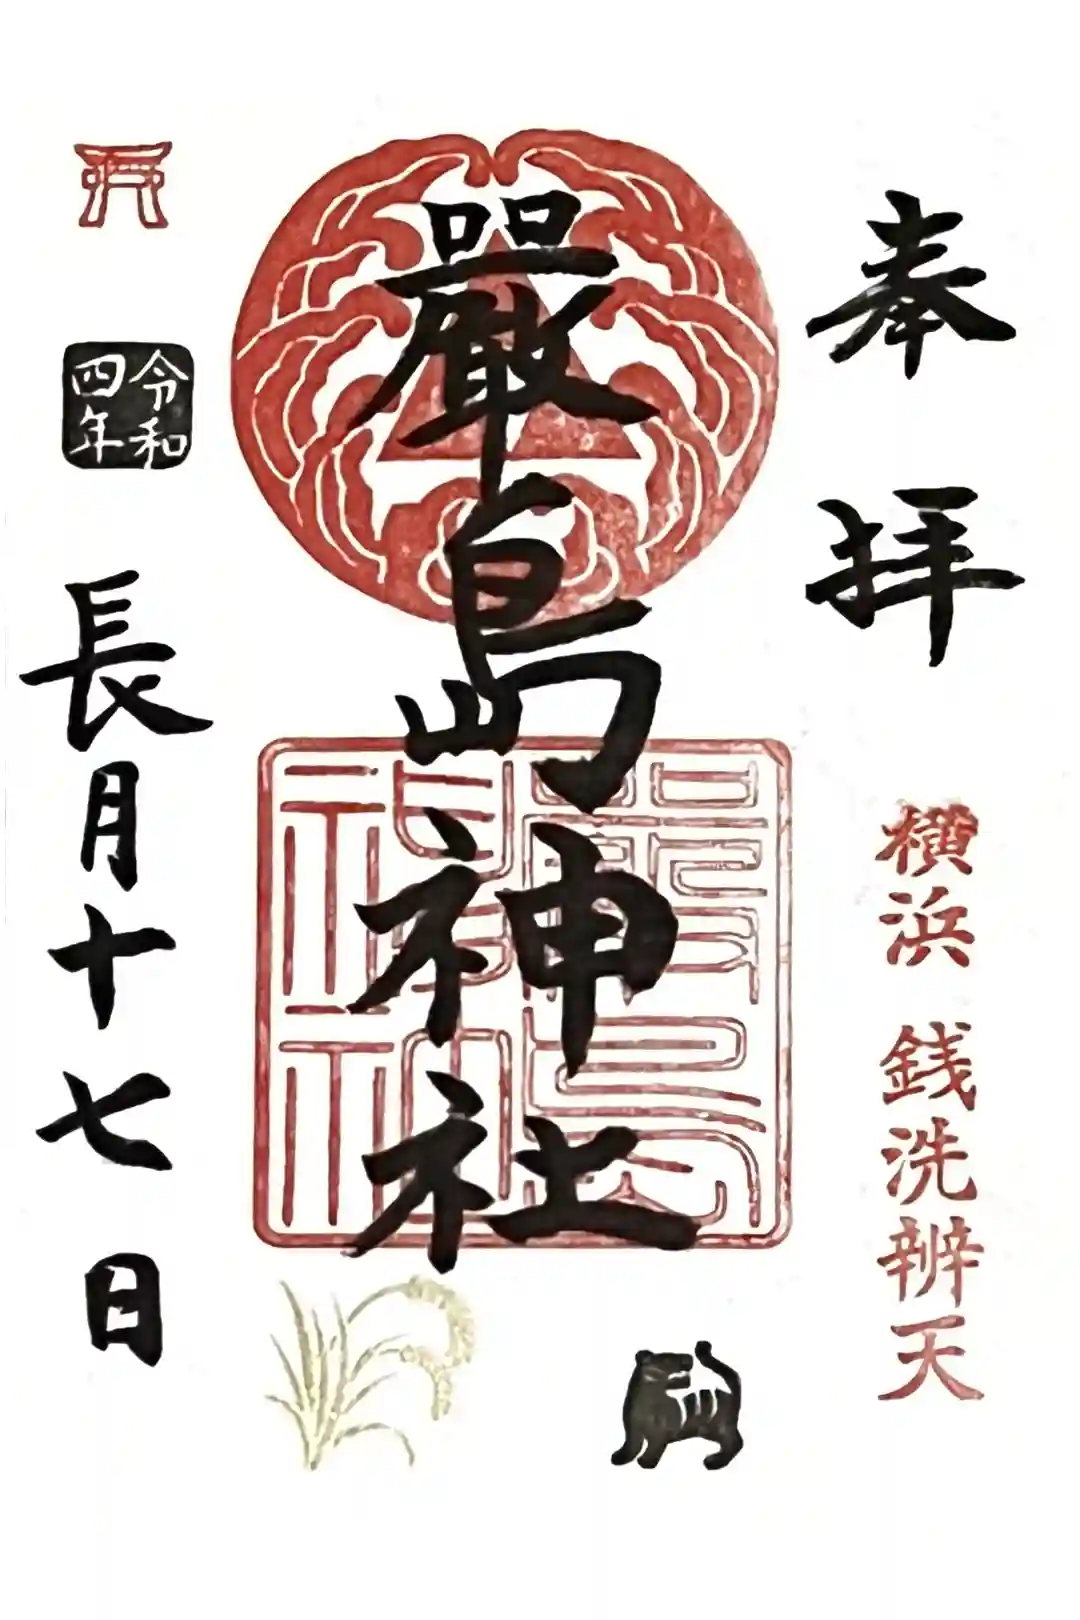 奉拝
横浜 銭洗辨天
嚴島神社
嚴島神社
令和
四年
長月十七日